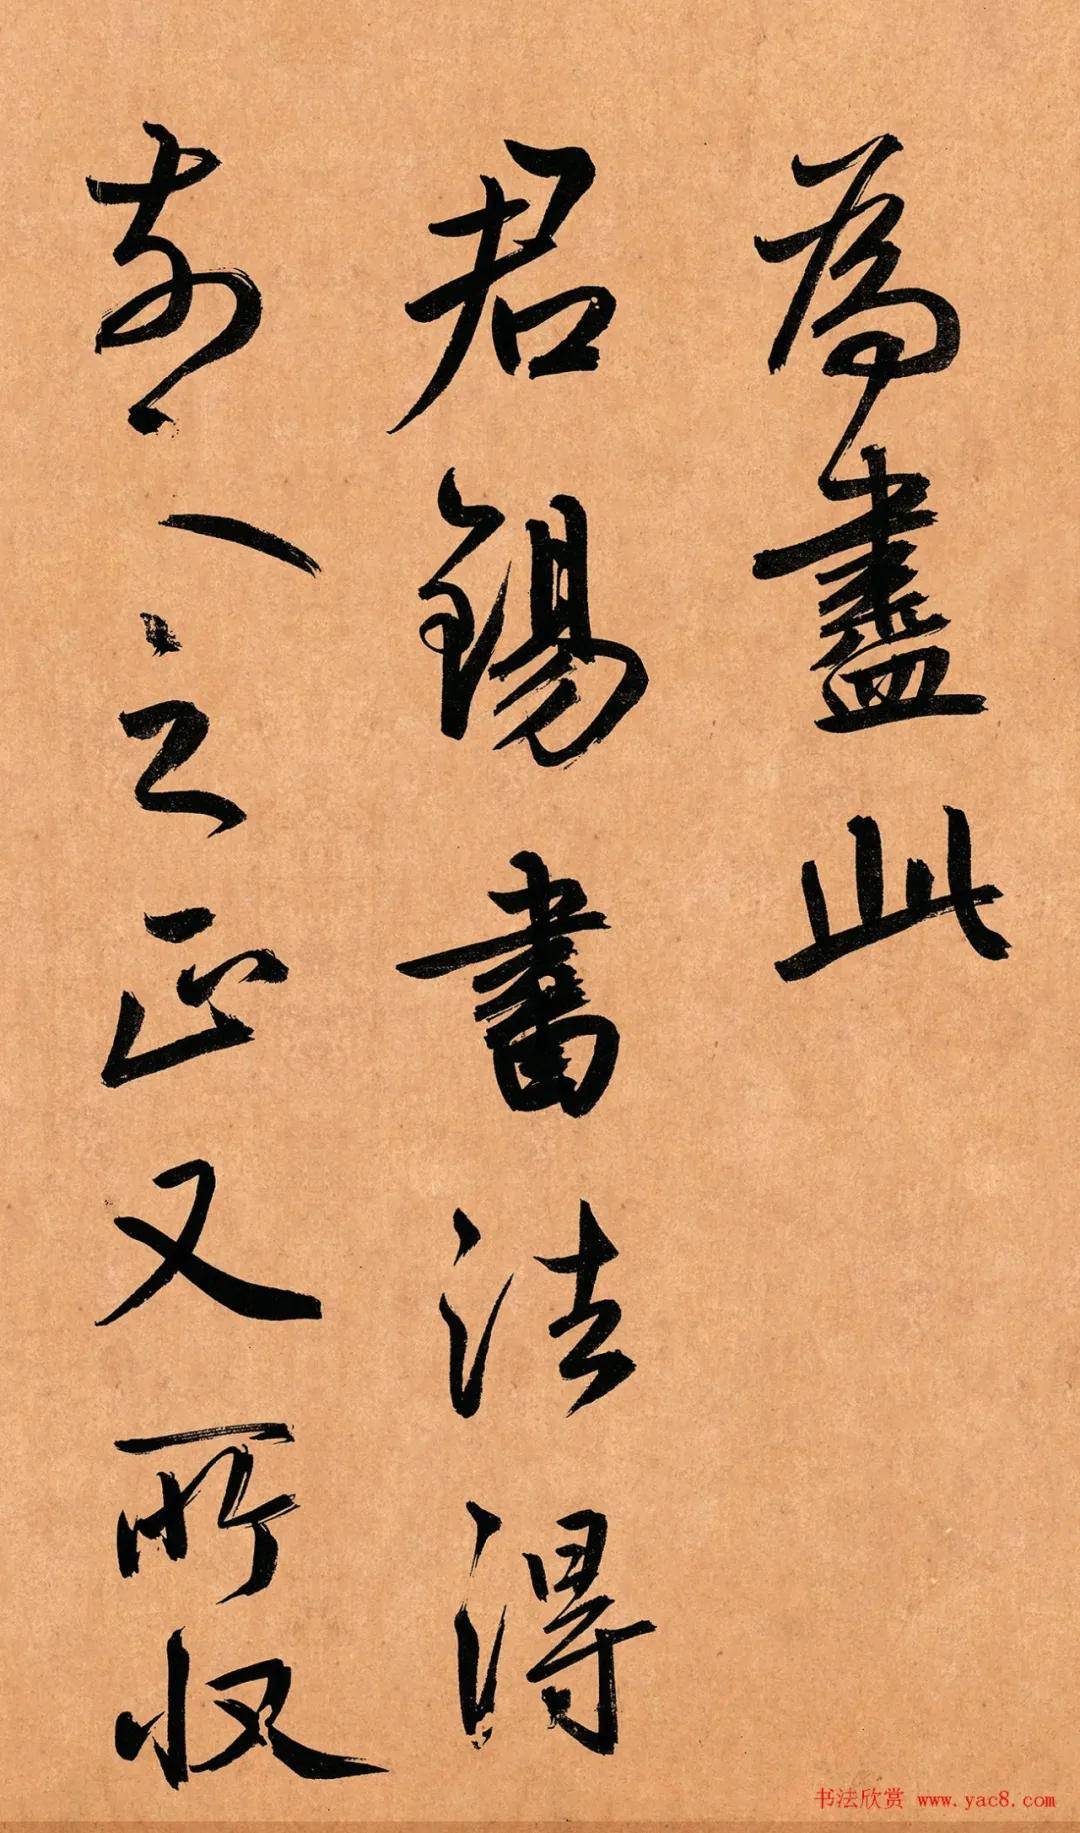 為盡此
君錫書法得
前人之正又所収
书法欣赏 www.yac8.com